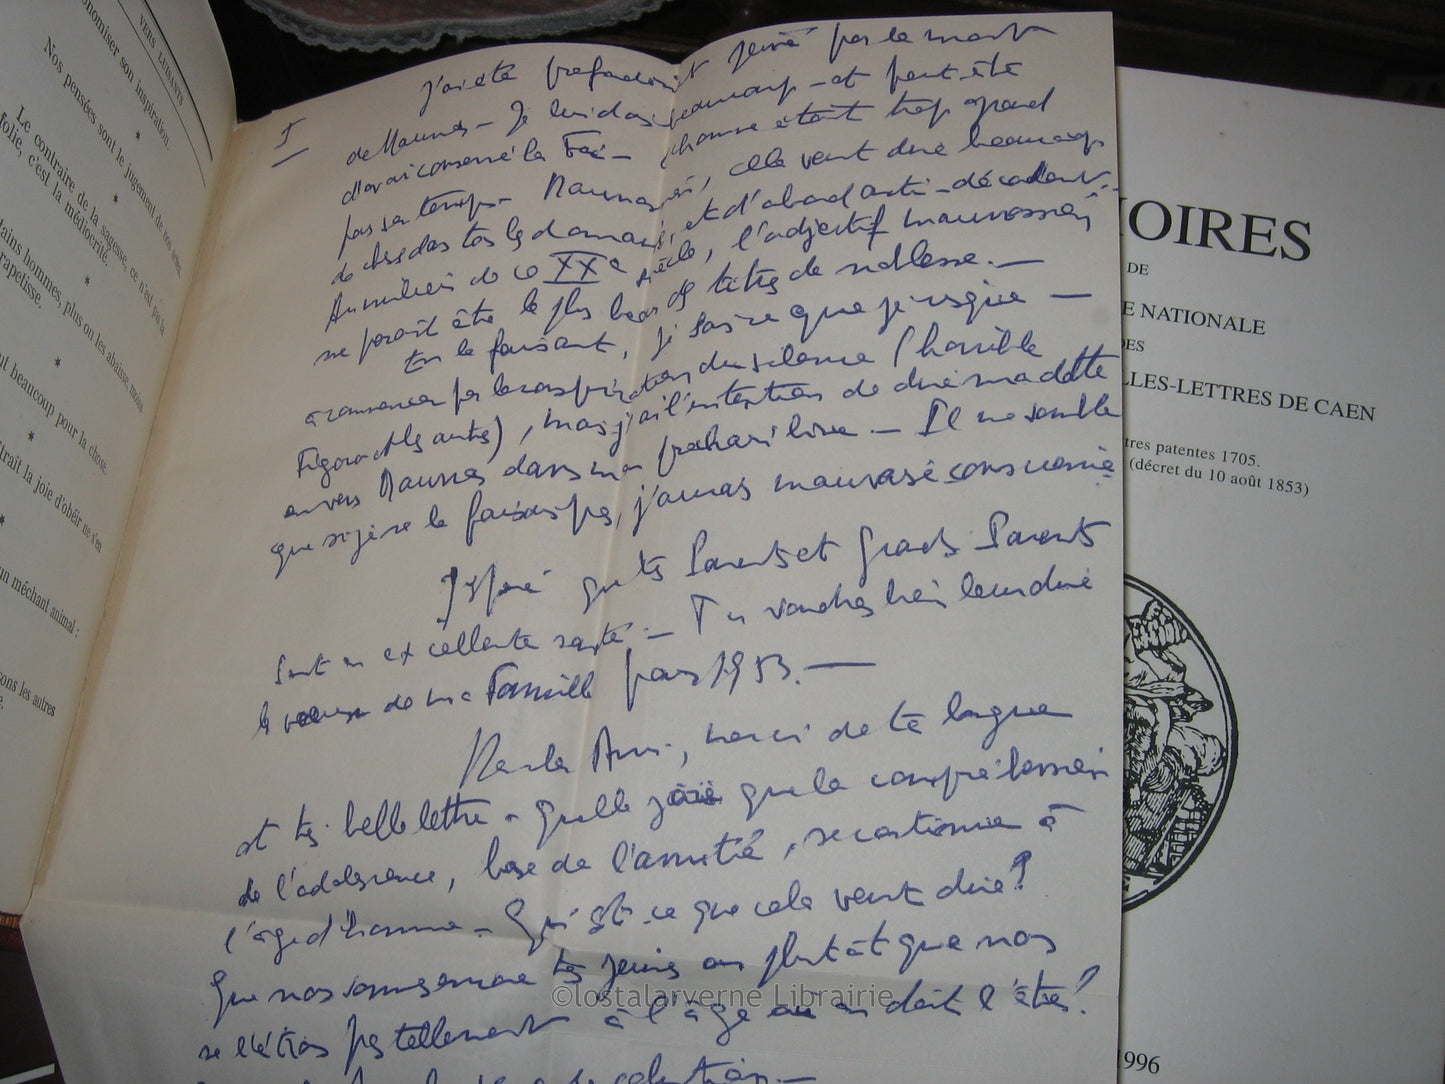 VERS LUISANTS
onomiser son inspiration.
Nos pensées sont le jugement de nos actes.
Le contraire de la sagesse, ce n'est pas la
folie, c'est la médiocrité.
tains hommes, plus on les abaisse, moins
rapetisse.
ut beaucoup pour la chose.
trait la joie d'obéir ne s'en
un méchant animal :
ons les autres
J'ai été profondément peiné par la mort
de Maurras - Je lui dois beaucoup - et peut-être
d'avoir conservé la Foi - L'homme était trop grand
pour son temps - Maurrassien, cela veut dire beaucoup
de choses dans tous les domaines, et d'abord anti-décadent.
Au milieu de ce XXe siècle, l'adjectif maurrassien
me paraît être le plus beau des titres de noblesse. -
En le faisant, je sais ce que je risque -
à commencer par la conspiration du silence (horrible
Figaro et les autres), mais j'ai l'intention de dire ma dette
envers Maurras dans mon prochain livre - Il me semble
que si je ne le faisais pas, j'aurais mauvaise conscience
J'espère que tes Parents et Grands Parents
sont en excellente santé - Tu voudras bien leur dire
les voeux de ma Famille pour 1953. -
Mon cher Ami, merci de ta longue
et très belle lettre - Quelle joie que la compréhension
de l'adolescence, base de l'amitié, se continue à
l'âge d'homme - Qu'est-ce que cela veut dire?
Que nous sommes encore très jeunes ou plutôt que nous
ne l'étions pas tellement à l'âge où on doit l'être?
MOIRES
DE
E NATIONALE
DES
LLES-LETTRES DE CAEN
tres patentes 1705.
(décret du 10 août 1853)
1996
©lostalarverne Librairie